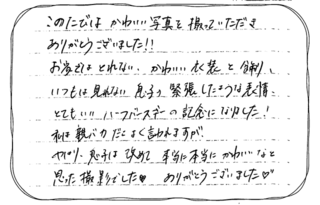 このたびは かわいい写真を撮っていただき
ありがとうございました!!
お家ではとれない、かわいい衣装と
いつもは見れない 息子の緊張したような表情、
とてもいい ハーフバースデーの記念になりました!
私は親バカだとよく言われますが、
やはり、息子は改めて 本当に本当にかわいいなと
思った撮影でした♥ ありがとうございました♡